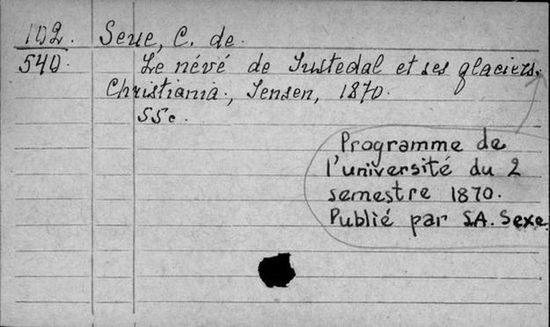 102. Seue, C. de.
540. Le névé de Justedal et ses glaciers.
Christiania, Jensen, 1870.
55c.
Programme de
l'université du 2
semestre 1870.
Publié par S.A. Sexe